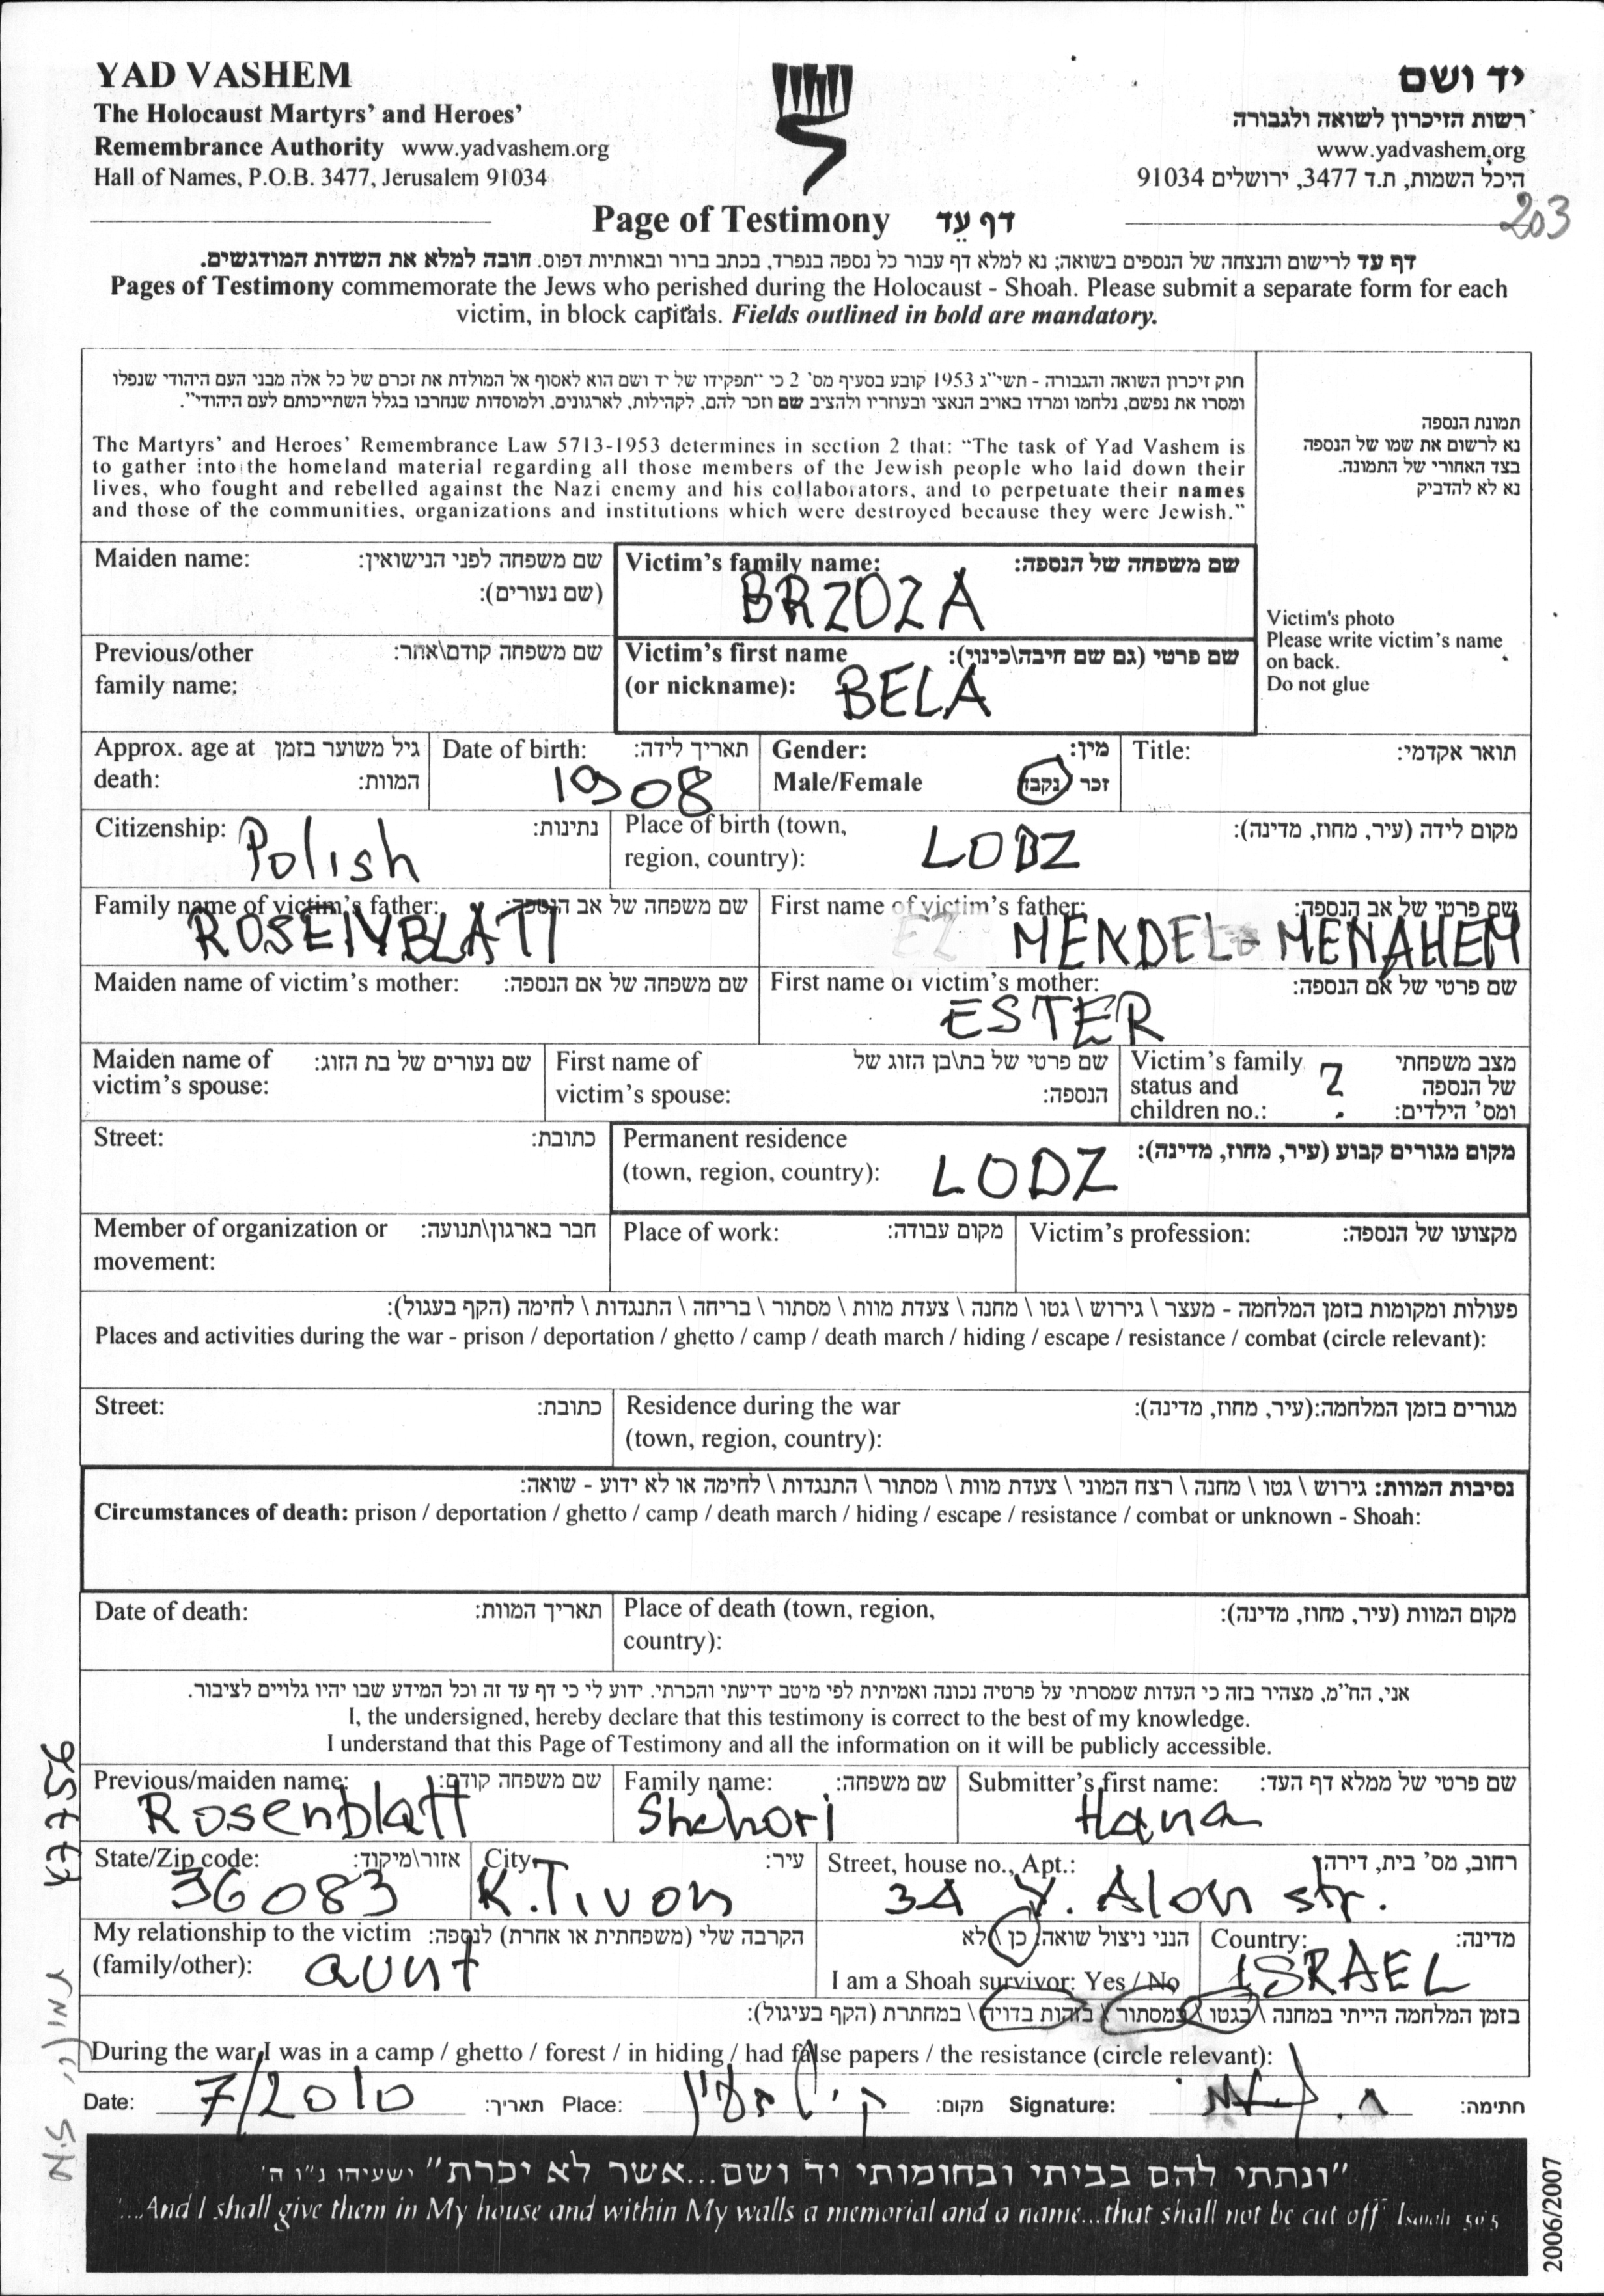 YAD VASHEM
The Holocaust Martyrs' and Heroes'
Remembrance Authority www.yadvashem.org
Hall of Names, P.O.B. 3477, Jerusalem 91034
יד ושם
רשות הזיכרון לשואה ולגבורה
www.yadvashem.org
היכל השמות, ת.ד 3477, ירושלים 91034
203
Page of Testimony דף עֵד
דף עד לרישום והנצחה של הנספים בשואה; נא למלא דף עבור כל נספה בנפרד, בכתב ברור ובאותיות דפוס. חובה למלא את השדות המודגשים.
Pages of Testimony commemorate the Jews who perished during the Holocaust - Shoah. Please submit a separate form for each
victim, in block capitals. Fields outlined in bold are mandatory.
חוק זיכרון השואה והגבורה - תשי"ג 1953 קובע בסעיף מס' 2 כי "תפקידו של יד ושם הוא לאסוף אל המולדת את זכרם של כל אלה מבני העם היהודי שנפלו
ומסרו את נפשם, נלחמו ומרדו באויב הנאצי ובעוזריו ולהציב שם וזכר להם, לקהילות, לארגונים, ולמוסדות שנחרבו בגלל השתייכותם לעם היהודי".
The Martyrs' and Heroes' Remembrance Law 5713-1953 determines in section 2 that: "The task of Yad Vashem is
to gather into the homeland material regarding all those members of the Jewish people who laid down their
lives, who fought and rebelled against the Nazi enemy and his collaborators, and to perpetuate their names
and those of the communities, organizations and institutions which were destroyed because they were Jewish."
תמונת הנספה
נא לרשום את שמו של הנספה
בצד האחורי של התמונה.
נא לא להדביק
Victim's photo
Please write victim's name
on back.
Do not glue
Maiden name: שם משפחה לפני הנישואין:
(שם נעורים):
Victim's family name: שם משפחה של הנספה:
BRZOZA
Previous/other שם משפחה קודם\אחר:
family name:
Victim's first name שם פרטי (גם שם חיבה\כינוי):
(or nickname): BELA
Approx. age at גיל משוער בזמן
death: המוות:
Date of birth: תאריך לידה:
1908
Gender: מין:
Male/Female זכר נקבה
Title: תואר אקדמי:
Citizenship: Polish נתינות:
Place of birth (town, מקום לידה (עיר, מחוז, מדינה):
region, country): LODZ
Family name of victim's father: שם משפחה של אב הנספה:
ROSENBLATT
First name of victim's father: שם פרטי של אב הנספה:
MENDEL - MENAHEM
Maiden name of victim's mother: שם משפחה של אם הנספה:
First name of victim's mother: שם פרטי של אם הנספה:
ESTER
Maiden name of שם נעורים של בת הזוג:
victim's spouse:
First name of שם פרטי של בת\בן הזוג של
victim's spouse: הנספה:
Victim's family מצב משפחתי
status and ? של הנספה
children no.: ומס' הילדים:
Street: כתובת:
Permanent residence מקום מגורים קבוע (עיר, מחוז, מדינה):
(town, region, country): LODZ
Member of organization or חבר בארגון\תנועה:
movement:
Place of work: מקום עבודה:
Victim's profession: מקצועו של הנספה:
פעולות ומקומות בזמן המלחמה - מעצר \ גירוש \ גטו \ מחנה \ צעדת מוות \ מסתור \ בריחה \ התנגדות \ לחימה (הקף בעגול):
Places and activities during the war - prison / deportation / ghetto / camp / death march / hiding / escape / resistance / combat (circle relevant):
Street: כתובת:
Residence during the war מגורים בזמן המלחמה:(עיר, מחוז, מדינה):
(town, region, country):
נסיבות המוות: גירוש \ גטו \ מחנה \ רצח המוני \ צעדת מוות \ מסתור \ התנגדות \ לחימה או לא ידוע - שואה:
Circumstances of death: prison / deportation / ghetto / camp / death march / hiding / escape / resistance / combat or unknown - Shoah:
Date of death: תאריך המוות:
Place of death (town, region, מקום המוות (עיר, מחוז, מדינה):
country):
אני, הח"מ, מצהיר בזה כי העדות שמסרתי על פרטיה נכונה ואמיתית לפי מיטב ידיעתי והכרתי. ידוע לי כי דף עד זה וכל המידע שבו יהיו גלויים לציבור.
I, the undersigned, hereby declare that this testimony is correct to the best of my knowledge.
I understand that this Page of Testimony and all the information on it will be publicly accessible.
Previous/maiden name: שם משפחה קודם:
Rosenblatt
Family name: שם משפחה:
Shchori
Submitter's first name: שם פרטי של ממלא דף העד:
Hana
State/Zip code: אזור\מיקוד:
36083
City: עיר:
K.Tivon
Street, house no., Apt.: רחוב, מס' בית, דירה:
3A Y. Alon str.
My relationship to the victim הקרבה שלי (משפחתית או אחרת) לנספה:
(family/other): aunt
הנני ניצול שואה: כן \ לא
I am a Shoah survivor: Yes / No
Country: מדינה:
ISRAEL
בזמן המלחמה הייתי במחנה \ בגטו \ במסתור \ בזהות בדויה \ במחתרת (הקף בעיגול):
During the war I was in a camp / ghetto / forest / in hiding / had false papers / the resistance (circle relevant):
Date: 7/2010 תאריך:
Place: ק. טבעון מקום:
Signature: חתימה:
"ונתתי להם בביתי ובחומותי יד ושם...אשר לא יכרת" ישעיהו נ"ו ה'
"...And I shall give them in My house and within My walls a memorial and a name...that shall not be cut off" Isaiah 56:5
2006/2007